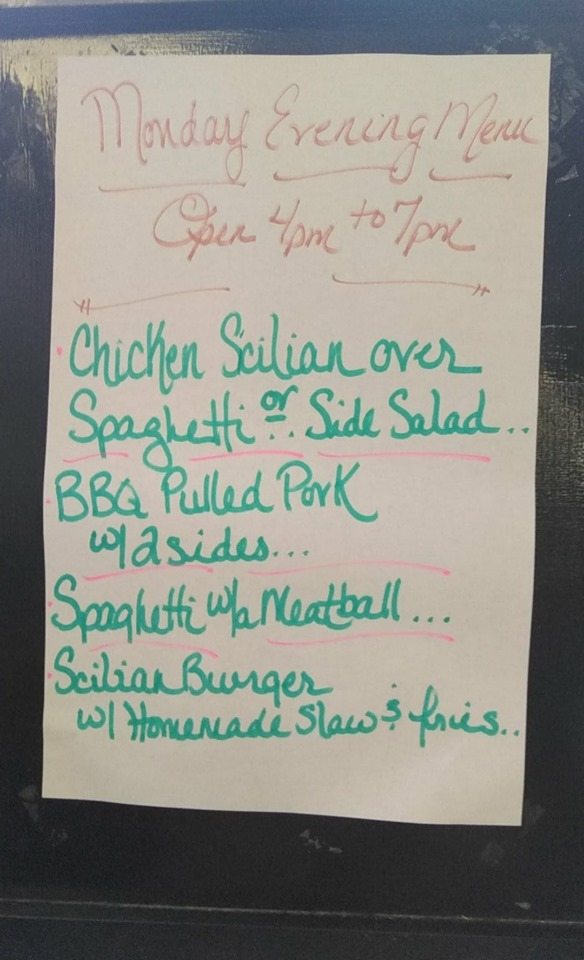 Monday Evening Menu
Open 4pm to 7pm
Chicken Scilian over
Spaghetti or.. Side Salad..
BBQ Pulled Pork
w/2sides...
Spaghetti w/a Meatball...
Scilian Burger
w/ Homemade Slaw & fries..